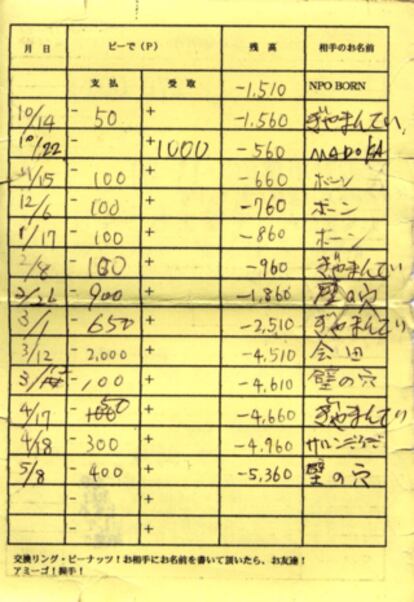 月日 ピーで(P) 残高 相手のお名前
支払 受取 -1,510 NPO BORN
10/14 - 50 + -1,560 ぎやまんてい
10/22 - +1000 -560 MADOKA
11/15 - 100 + -660 ボーン
12/6 - 100 + -760 ボーン
1/17 - 100 + -860 ボーン
2/8 - 100 + -960 ぎやまんてい
- 900 + -1,860 壁の穴
3/1 - 650 + -2,510 ぎやまんてい
3/12 - 2,000 + -4,510 会田
- 100 + -4,610 壁の穴
4/17 - 50 + -4,660 ぎやまんてい
4/18 - 300 + -4,960
5/8 - 400 + -5,360 壁の穴
- +
- +
交換リング・ピーナッツ!お相手にお名前を書いて頂いたら、お友達!
アミーゴ!握手!